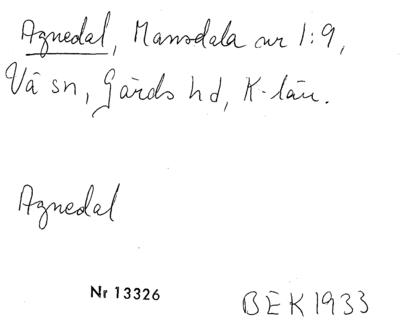 Agnedal, Mansdala nr 1:9,
Vä sn, Gärds hd, K-län.
Agnedal
Nr 13326
BEK 1933